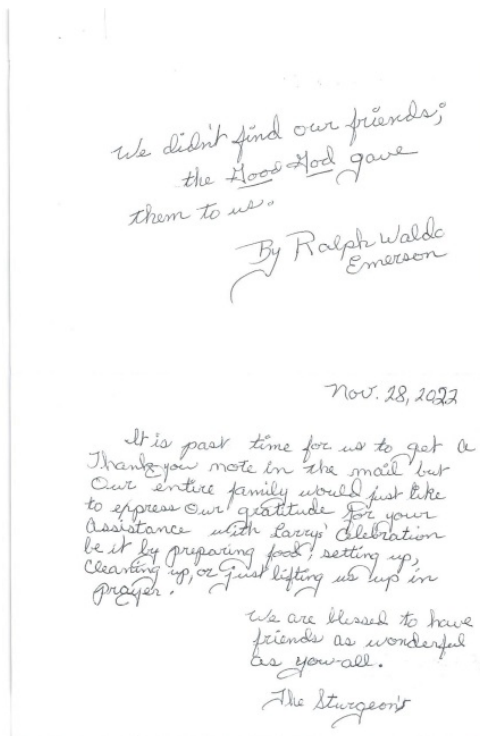 We didn't find our friends;
the Good God gave
them to us.
By Ralph Waldo
Emerson
Nov. 28, 2022
It is past time for us to get a
Thank you note in the mail but
Our entire family would just like
to express our gratitude for your
assistance with Larry's Celebration
be it by preparing food, setting up,
cleaning up, or just lifting us up in
prayer.
We are blessed to have
friends as wonderful
as you-all.
The Sturgeon's